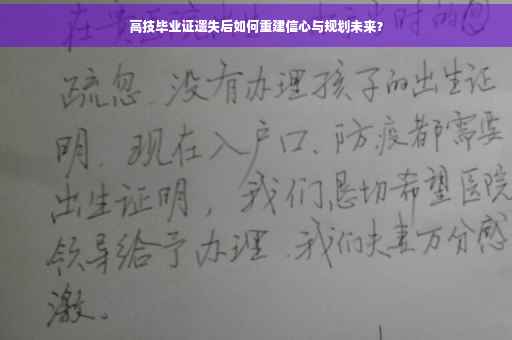 高技毕业证遗失后如何重建信心与规划未来？
疏忽、没有办理孩子的出生证
明、现在入户口、防疫都需要
出生证明，我们恳切希望医院
领导给予办理、我们夫妻万分感
激。